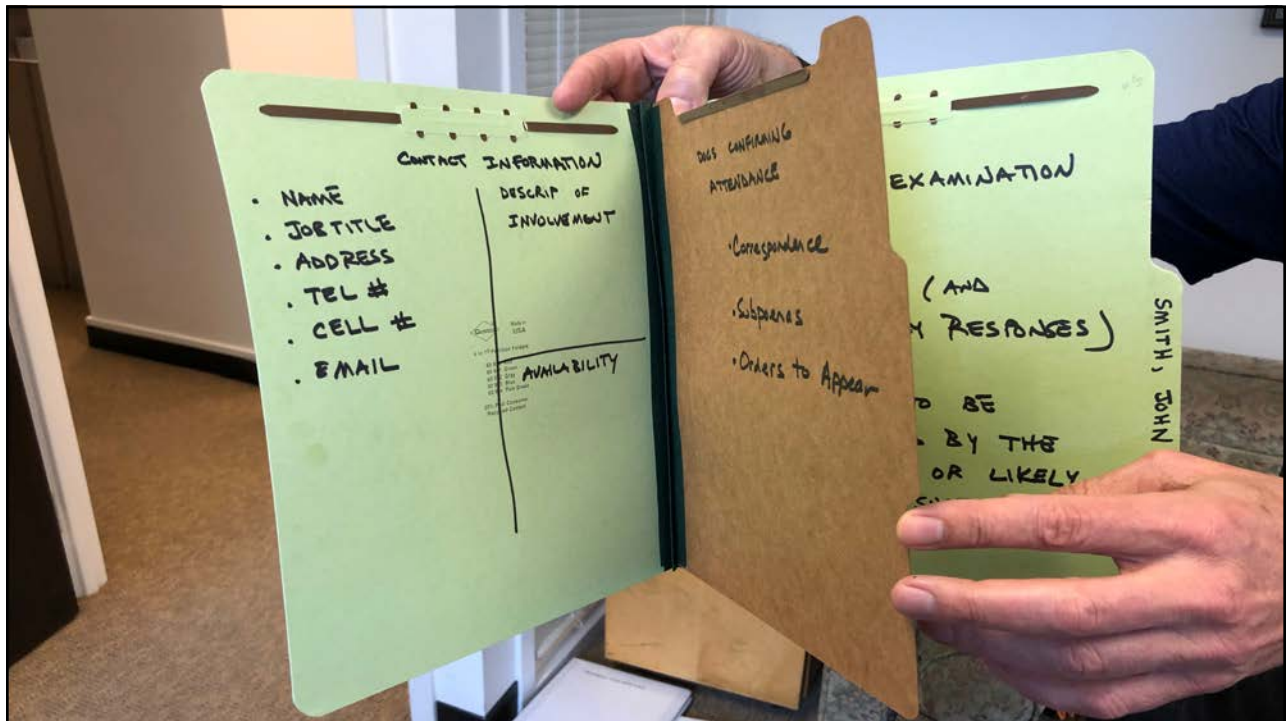 CONTACT INFORMATION
• NAME
• JOB TITLE
• ADDRESS
• TEL #
• CELL #
• EMAIL
DESCRIP OF
INVOLVEMENT
Made in
USA
AVAILABILITY
DOCS CONFIRMING
ATTENDANCE
• Correspondence
• Subpoenas
• Orders to Appear
EXAMINATION
(AND
RESPONSES)
BE
BY THE
OR LIKELY
SMITH, JOHN